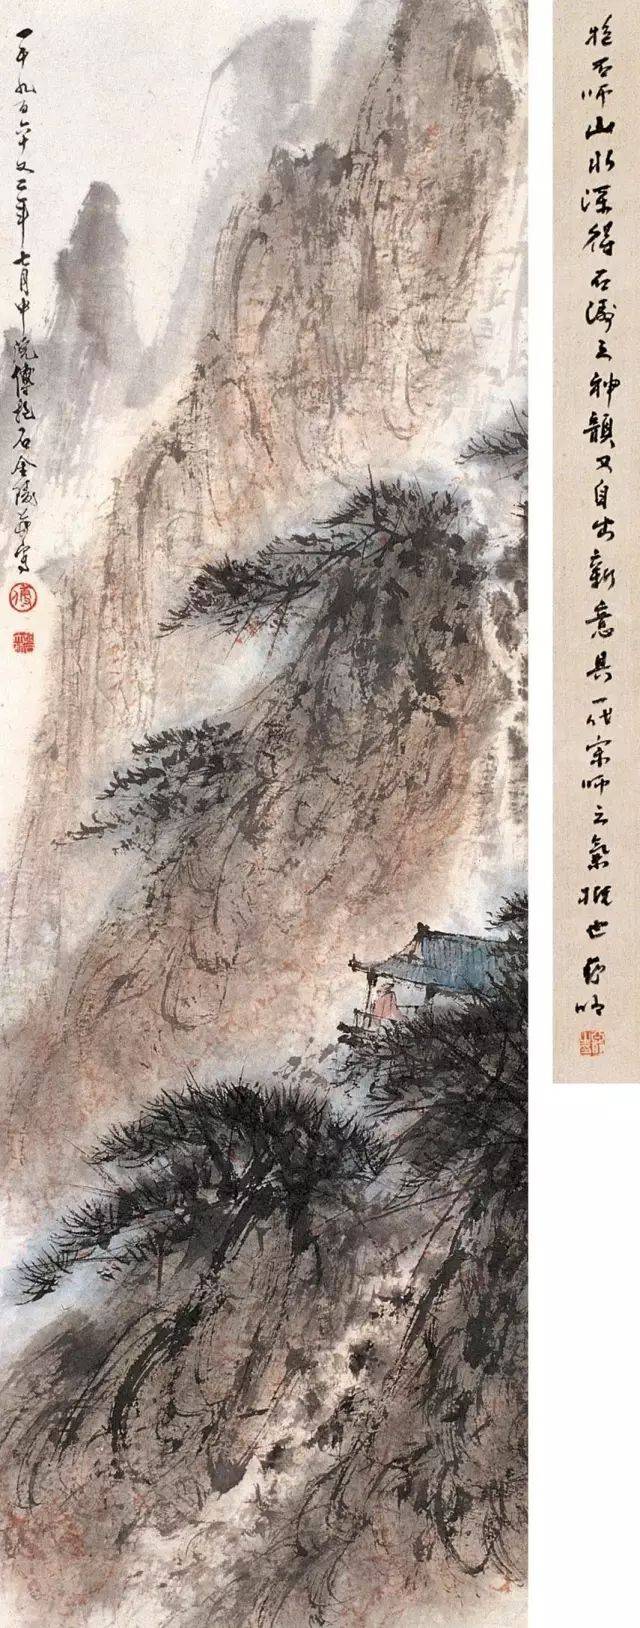 抱石师山水深得石涛之神韻又自出新意具一代宗师之氣概也亚明
一千九百六十又二年七月中浣傅抱石金陵寫
傅